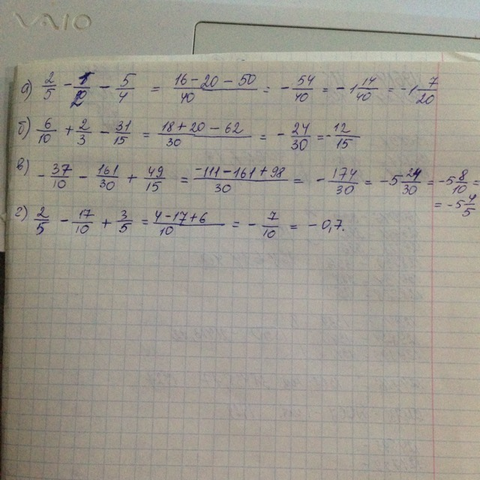 VAIO
а) 2/5 - 1/2 - 5/4 = (16 - 20 - 50)/40 = - 54/40 = -1 14/40 = -1 7/20
б) 6/10 + 2/3 - 31/15 = (18 + 20 - 62)/30 = - 24/30 = - 12/15
в) - 37/10 - 161/30 + 49/15 = (-111 - 161 + 98)/30 = - 174/30 = -5 24/30 = -5 8/10 =
= -5 4/5
г) 2/5 - 17/10 + 3/5 = (4 - 17 + 6)/10 = - 7/10 = - 0,7.